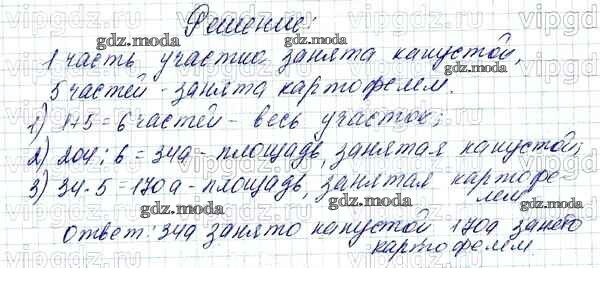 Решение:
1 часть участка занята капустой,
5 частей - занята картофелем.
1) 1+5=6 частей - весь участок;
2) 204:6=34а - площадь, занятая капустой;
3) 34·5=170а - площадь, занятая картофе-
лем
ответ: 34а занято капустой 170а занято
картофелем
gdz.moda
gdz.moda
gdz.moda
gdz.moda
gdz.moda
gdz.moda
gdz.moda
gdz.moda
gdz.moda